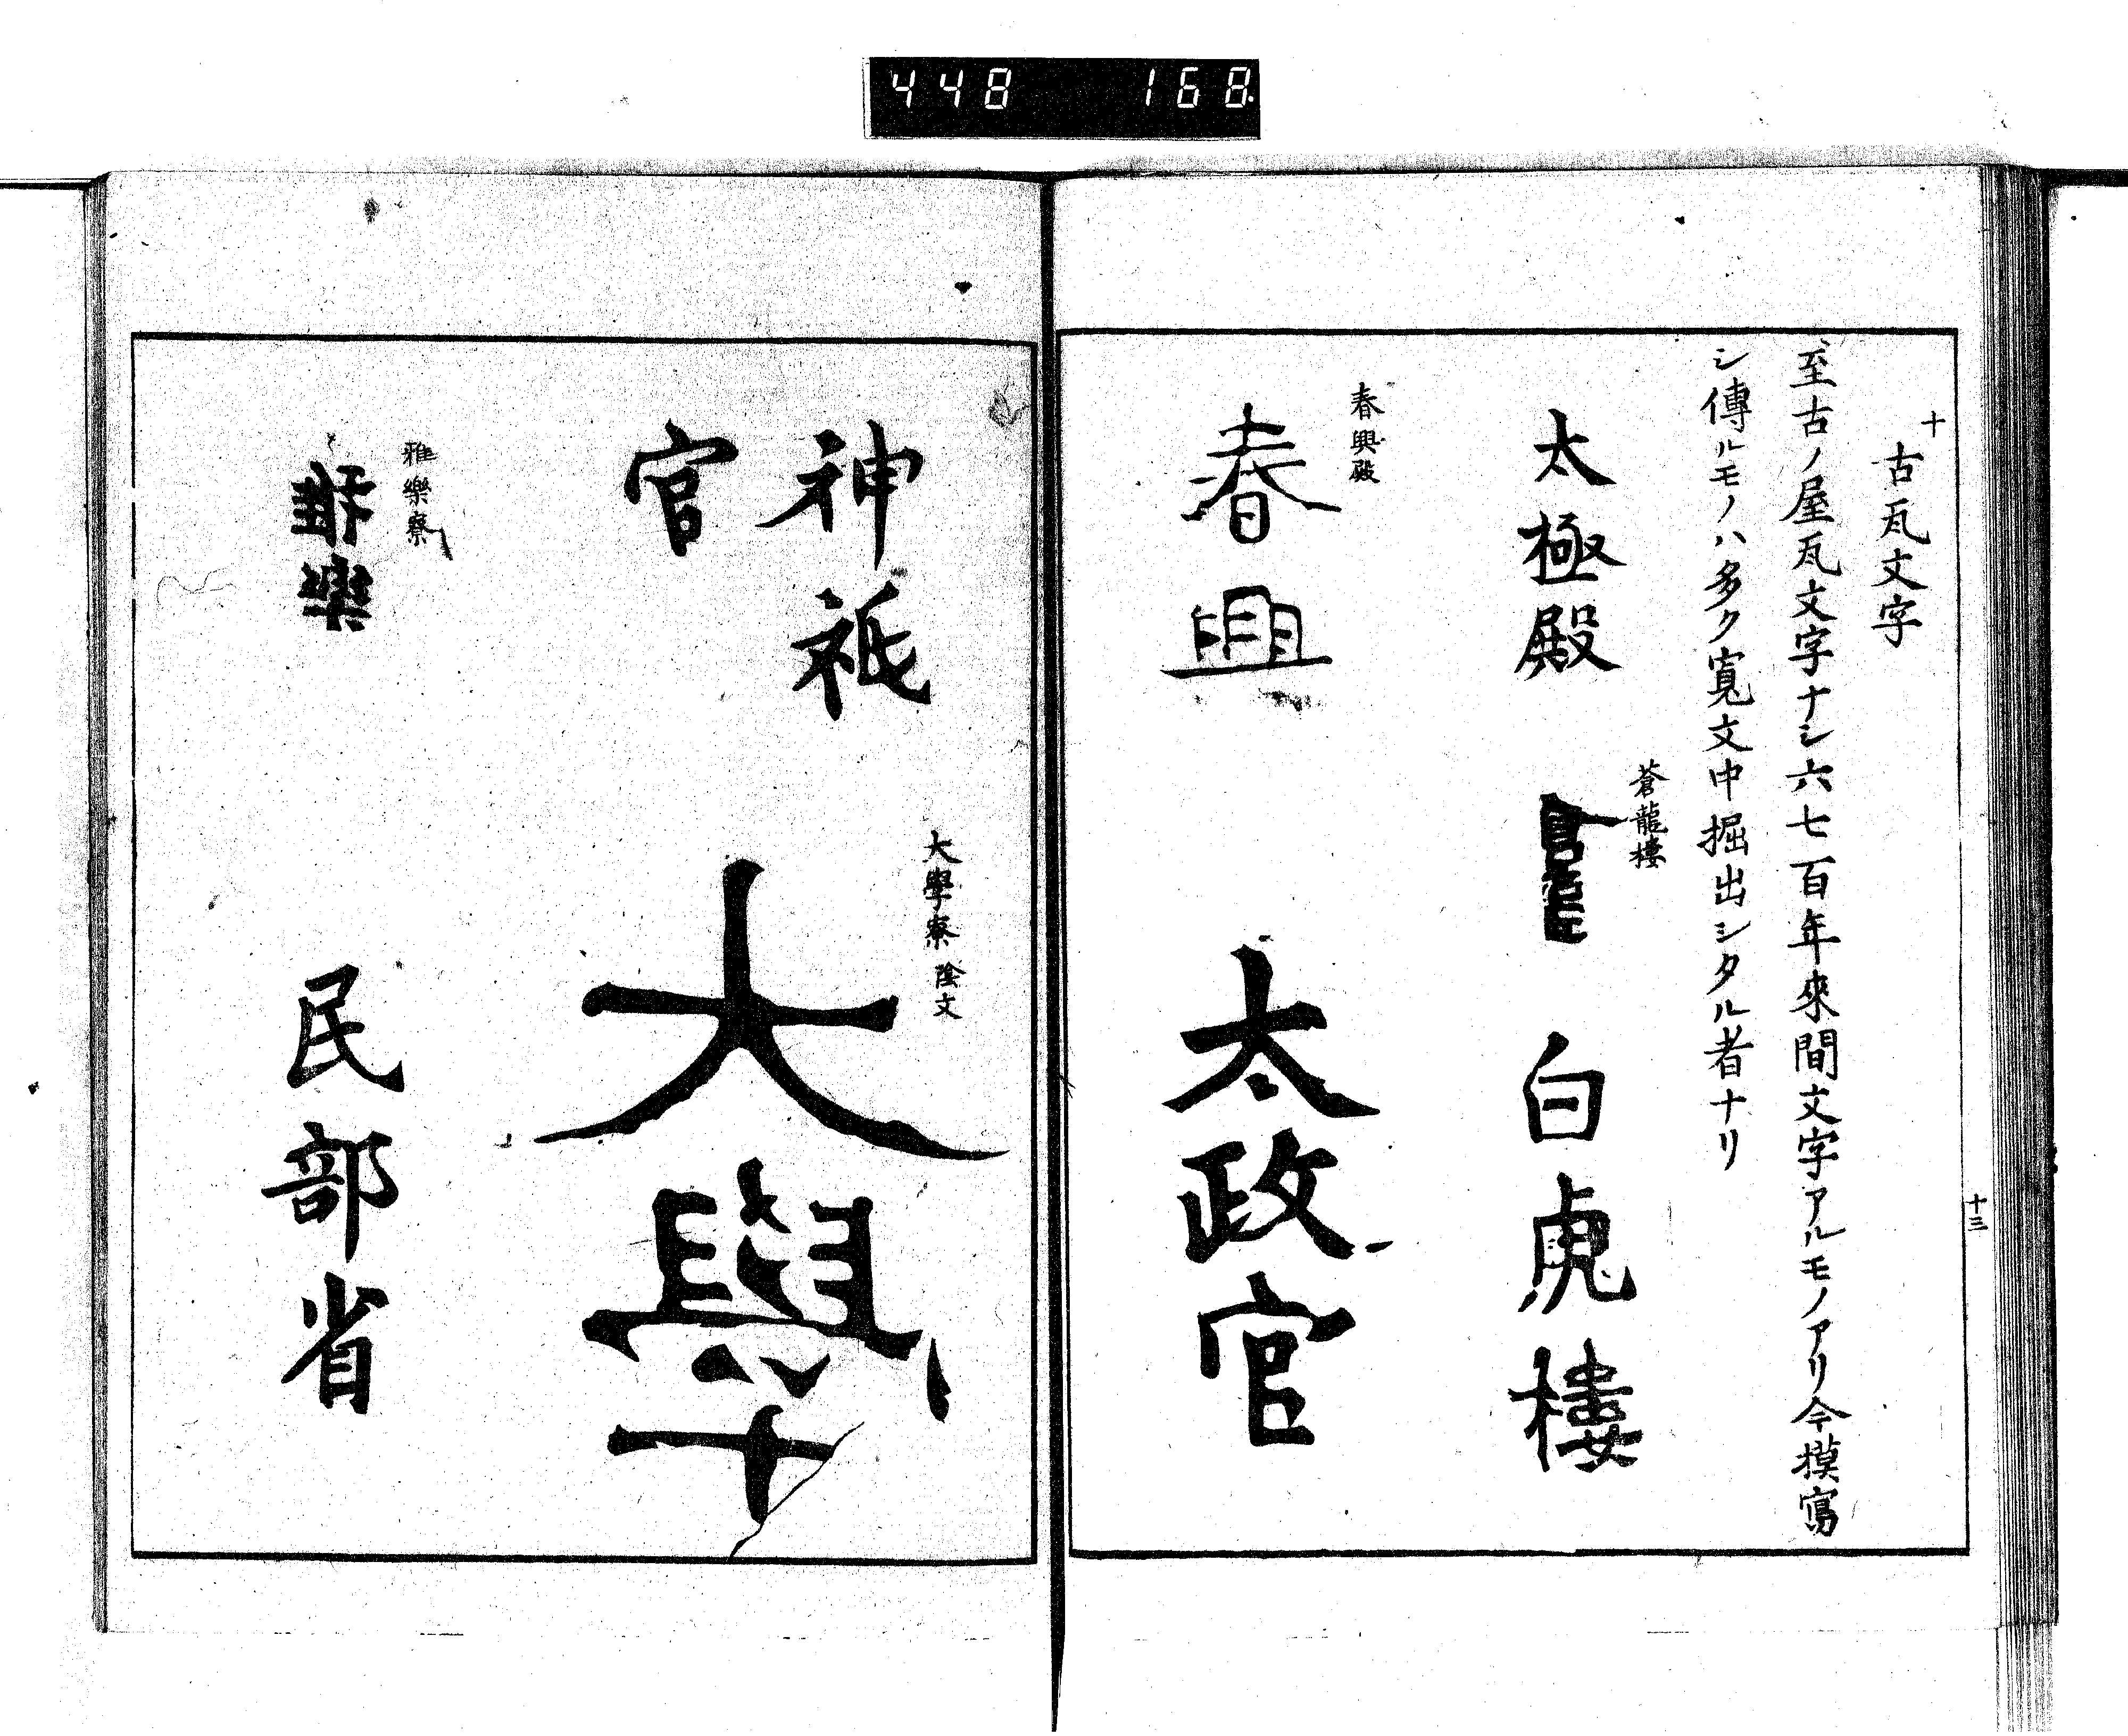 448 168
十
古瓦文字
至古ノ屋瓦文字ナシ六七百年來間文字アルモノアリ今摸寫
シ傳ルモノハ多ク寬文中掘出シタル者ナリ
太極殿
蒼龍樓
白虎樓
春興殿
春興
太政官
十三
神祇
官
大學寮 陰文
大學
雅樂寮
雅樂
民部省